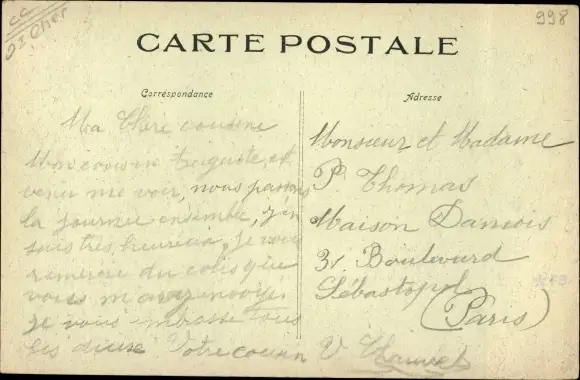 CC
DI Cher
998
CARTE POSTALE
Corréspondance
Ma Chère cousine
Mon cousin Auguste, est
venu me voir, nous passons
la journée ensemble, j'en
suis très heureux, je vous
remercie du colis que
vous m'avez envoyé.
Je vous embrasse tous
les deux Votre cousin V.
Adresse
Monsieur et Madame
P. Thomas
Maison Damois
31 Boulevard
Sébastopol
(Paris)